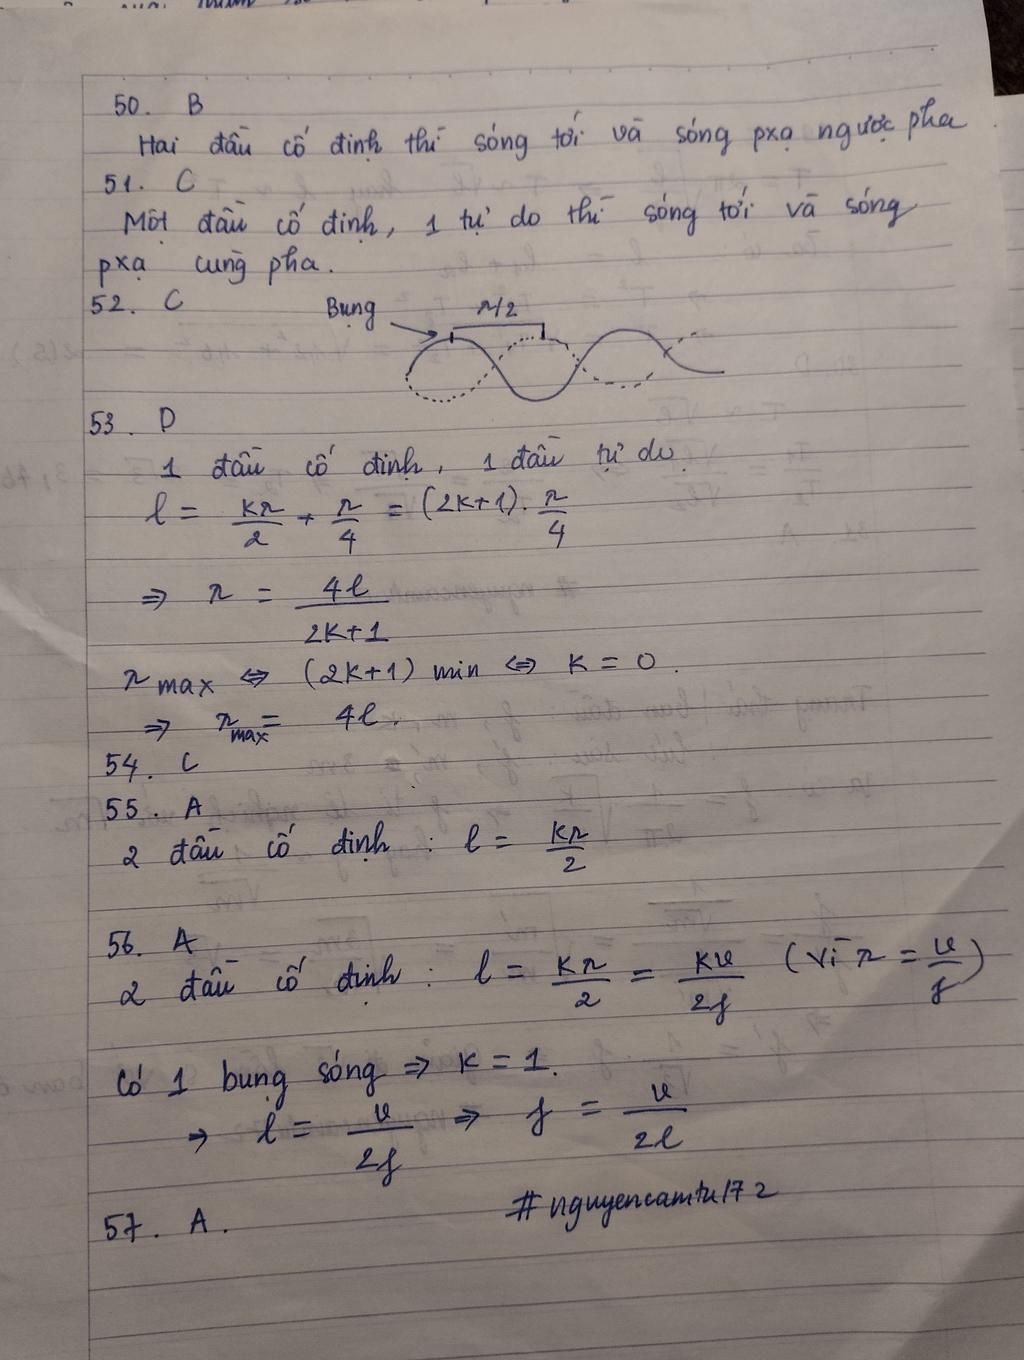 50. B
Hai đầu cố định thì sóng tới và sóng pxạ ngược pha
51. C
Một đầu cố định, 1 tự do thì sóng tới và sóng
pxạ cùng pha.
52. C
Bụng λ/2
53. D
1 đầu cố định, 1 đầu tự do
l = kλ/2 + λ/4 = (2k+1). λ/4
⇒ λ = 4l/(2k+1)
λ max ⇔ (2k+1) min ⇔ k = 0.
⇒ λ max = 4l.
54. C
55. A
2 đầu cố định : l = kλ/2
56. A
2 đầu cố định : l = kλ/2 = kv/2f (vì λ = v/f)
Có 1 bụng sóng ⇒ k = 1.
⇒ l = v/2f ⇒ f = v/2l
#nguyencamtu172
57. A.